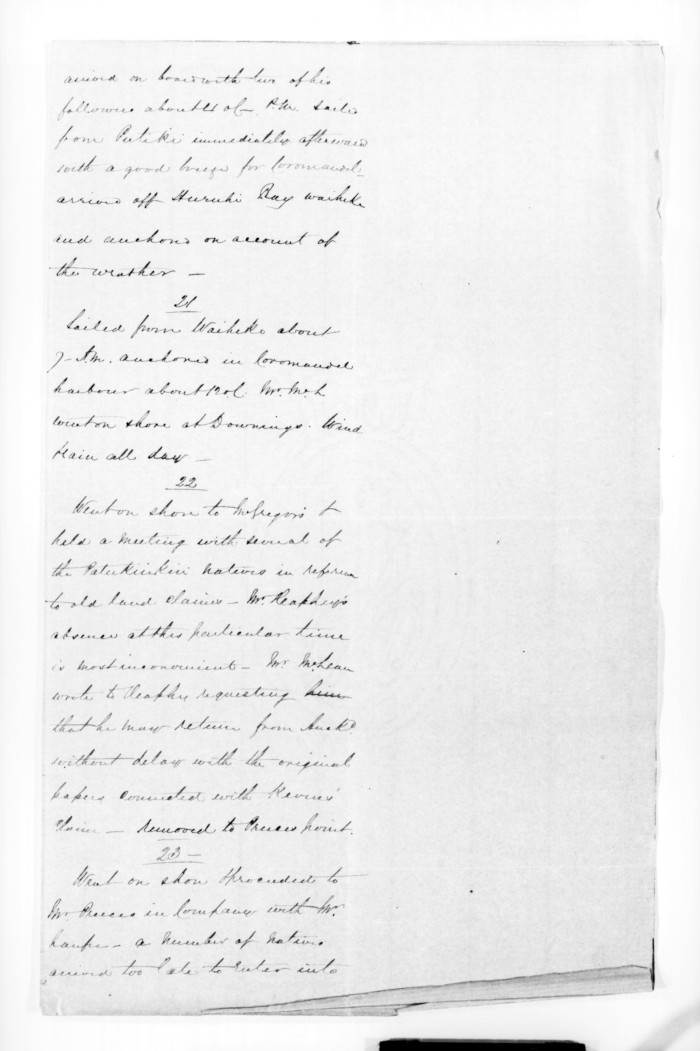 arrived on board with two of his
followers about 4 olc P.M. Sailed
from Putiki immediately afterward
with a good breeze for Coromandel
arrived off Huruhi Bay Waiheke
and anchored on account of
the weather —
21
Sailed from Waiheke about
7 A.M. anchored in Coromandel
harbour about 12 olc. Mr. McL
went on shore at Downings. Wind
& rain all day —
22
Went on shore to McGregor's &
held a meeting with several of
the Patukirikiri natives in reference
to old land claims — Mr. Heaphy's
absence at this particular time
is most inconvenient — Mr. McLean
wrote to Heaphy requesting him
that he may return from Auckd.
without delay with the original
papers connected with
Claim — removed to Preeces point.
23 —
Went on shore & proceeded to
Mr. Preeces in Company with Mr.
— a number of natives
arrived too late to enter into